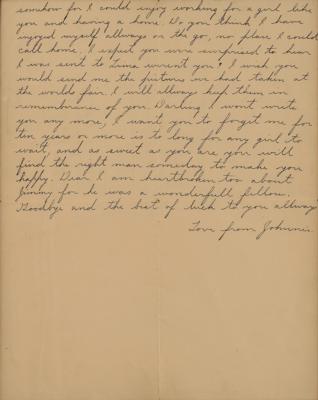 somehow for I could enjoy working for a girl like
you and having a home. Do you think I have
injoyed myself allways on the go, no place I could
call home. I expect you were surprised to hear
I was sent to Lima wernt you? I wish you
would send me the picture we had taken at
the worlds fair. I will allways keep them in
remembrance of you. Darling I wont write
you any more, I want you to forget me for
ten years or more is to long for any girl to
wait, and as sweet as you are you will
find the right man someday to make you
happy. Dear I am heartbroken too about
Jimmy for he was a wonderfull fellow.
Goodbye and the best of luck to you allways
Love from Johnnie.